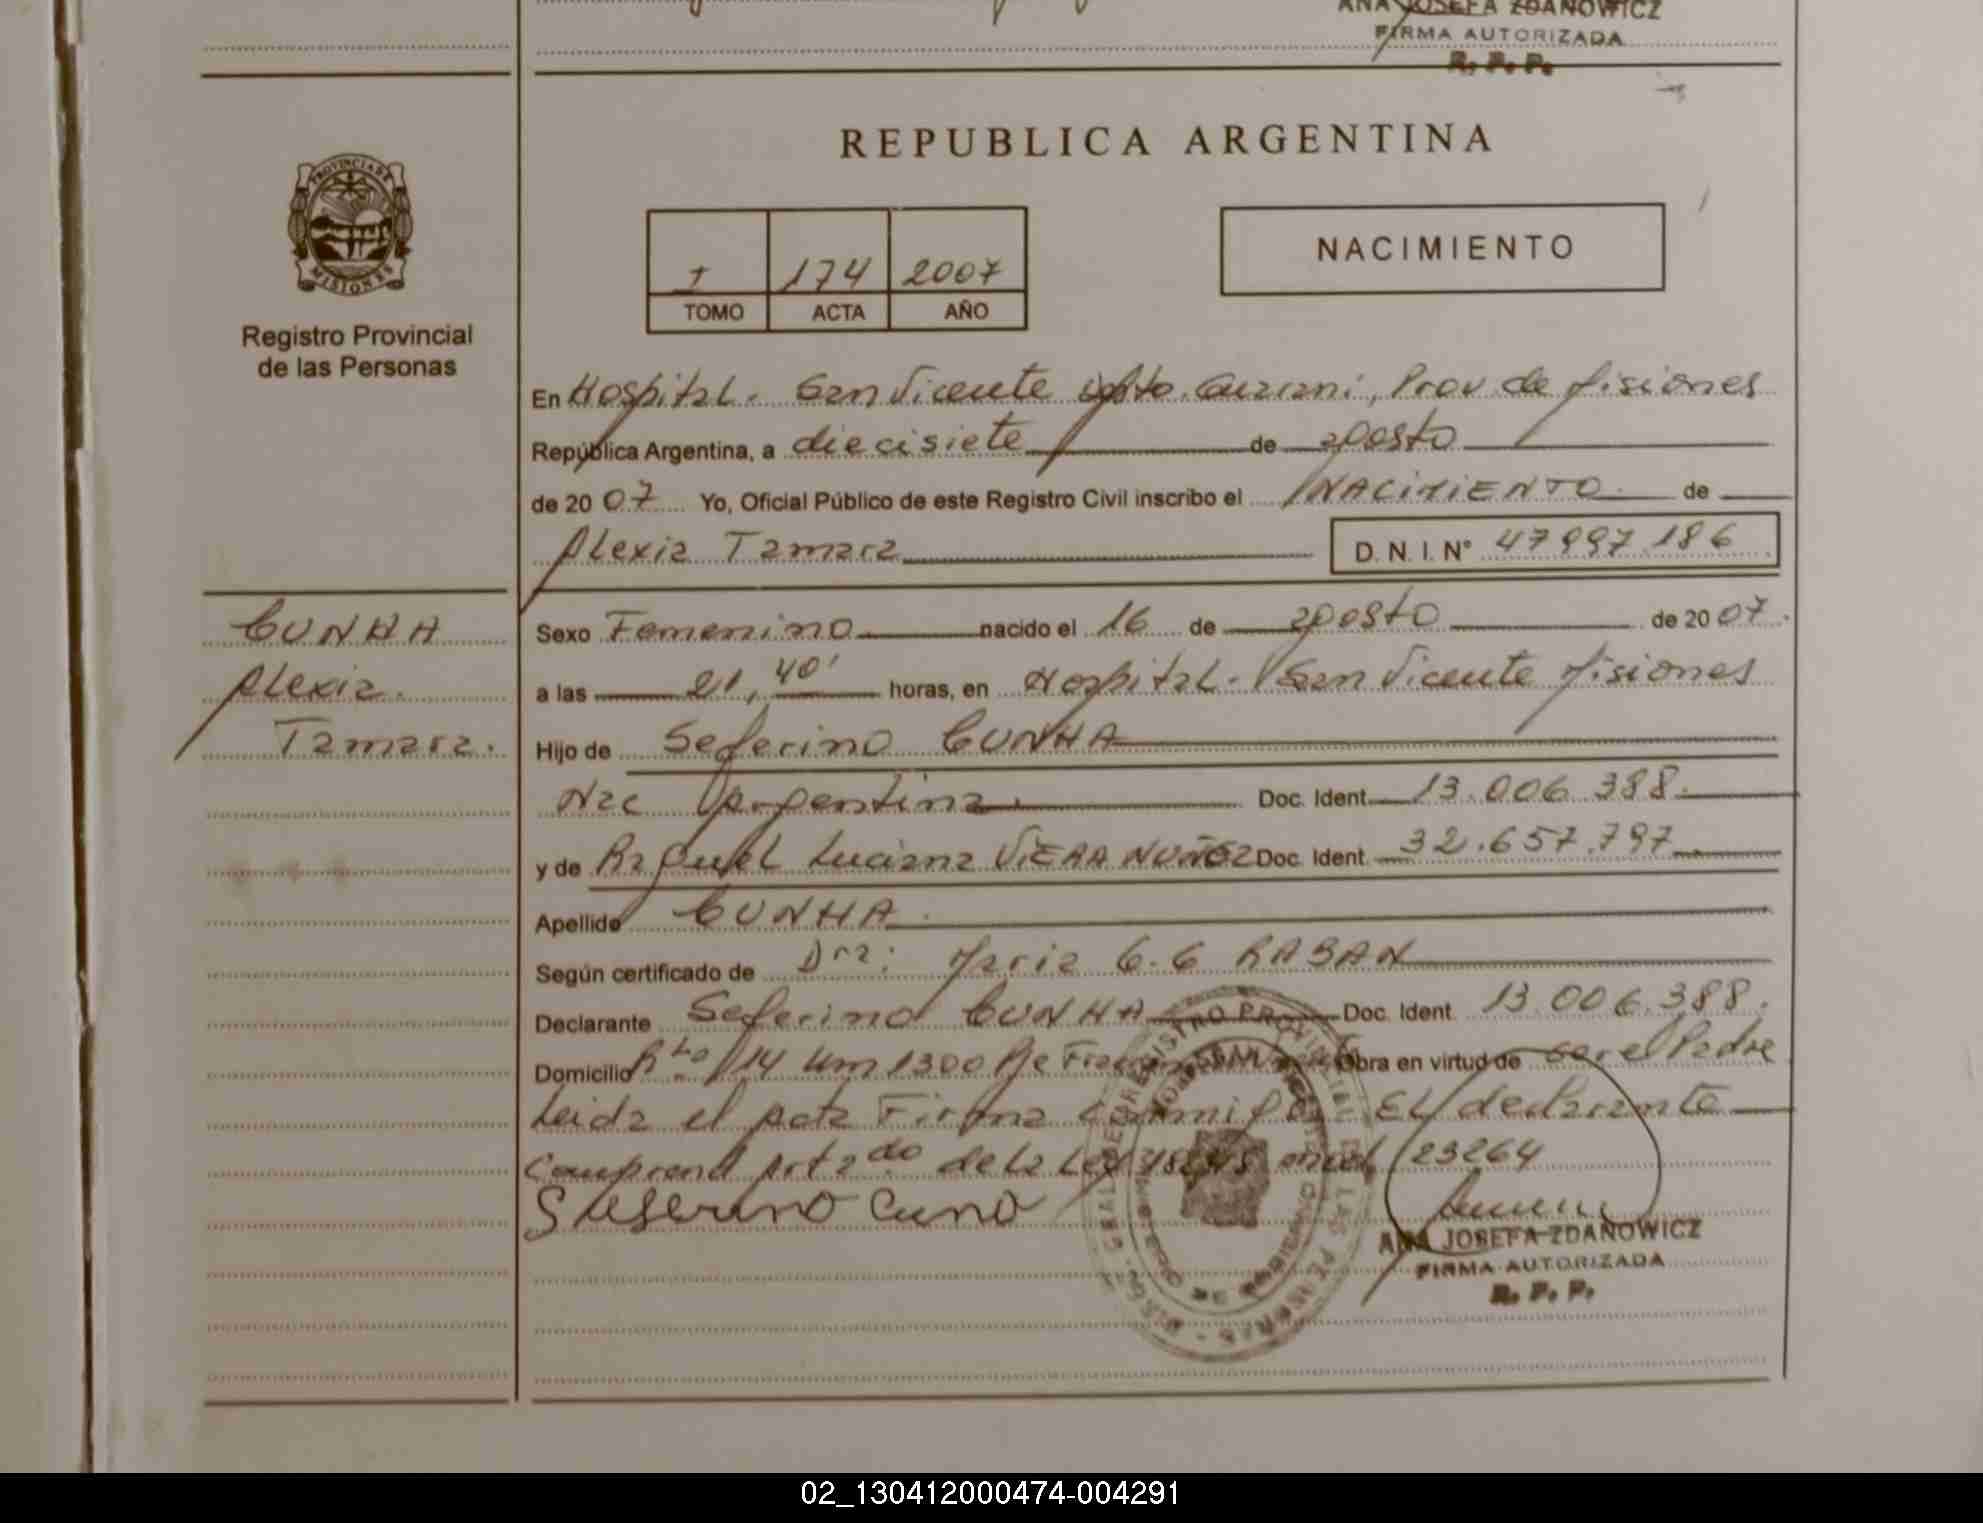 ANA JOSEFA ZDANOWICZ
FIRMA AUTORIZADA
R. P. P.
REPUBLICA ARGENTINA
PROVINCIA DE
MISIONES
Registro Provincial
de las Personas
I 174 2007
TOMO ACTA AÑO
NACIMIENTO
En Hospital. San Vicente Guarani, Prov de Misiones
República Argentina, a diecisiete de agosto
de 2007 Yo, Oficial Público de este Registro Civil inscribo el NACIMIENTO de
Alexia Tamara D. N. I. N° 47997.186
CUNHA
Alexia
Tamara.
Sexo Femenino nacido el 16 de agosto de 2007.
a las 21,40' horas, en Hospital. San Vicente Misiones
Hijo de Seferino CUNHA
Nac Argentina. Doc. Ident. 13.006.388.
y de Raquel Luciana VIERA NUÑEZ Doc. Ident. 32.657.797
Apellido CUNHA.
Según certificado de Dra: Maria G. G RABAN
Declarante Seferino CUNHA Doc. Ident. 13.006.388.
Domicilio Rta 14 Km 1300 Obra en virtud de ser el Padre
Leida el acta Firma Conmigo El declarante
Comprend Art 2do de la Ley 23264
Seferino Cuna
ANA JOSEFA ZDANOWICZ
FIRMA AUTORIZADA
R. P. P.
02_130412000474-004291